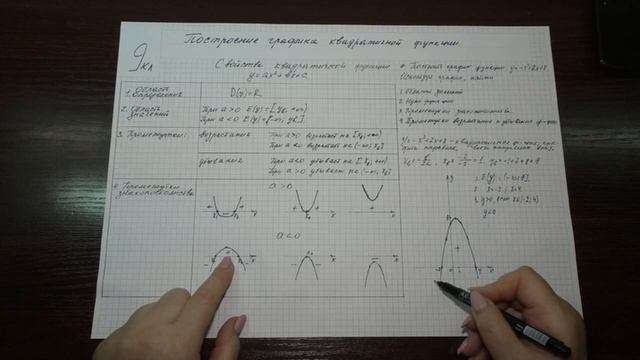 Построение графика квадратичной функции
9 кл
Свойства квадратичной функции
y = ax² + bx + c
1. Область определения
D(y) = R
2. Область значений
При a > 0 E(y) = [y₀; +∞)
При a < 0 E(y) = (-∞; y₀]
3. Промежутки:
возрастания
При a > 0 возрастает на [x₀; +∞)
При a < 0 возрастает на (-∞; x₀]
убывания
При a < 0 убывает на [x₀; +∞)
При a > 0 убывает на (-∞; x₀]
4. Промежутки знакопостоянства
a > 0
a < 0
Построить график функции y = -x² + 2x + 8.
график, найти
1. Область значений
2. Нули функции
3. Промежутки знакопостоянства
4. Промежутки возрастания и убывания
y = -x² + 2x + 8 - квадратичная
парабола, ветви направлены вниз.
= 1
1. E(y) = (-∞; 9]
2. x = -2; x = 4
3. y > 0, x ∈ (-2; 4)
y < 0